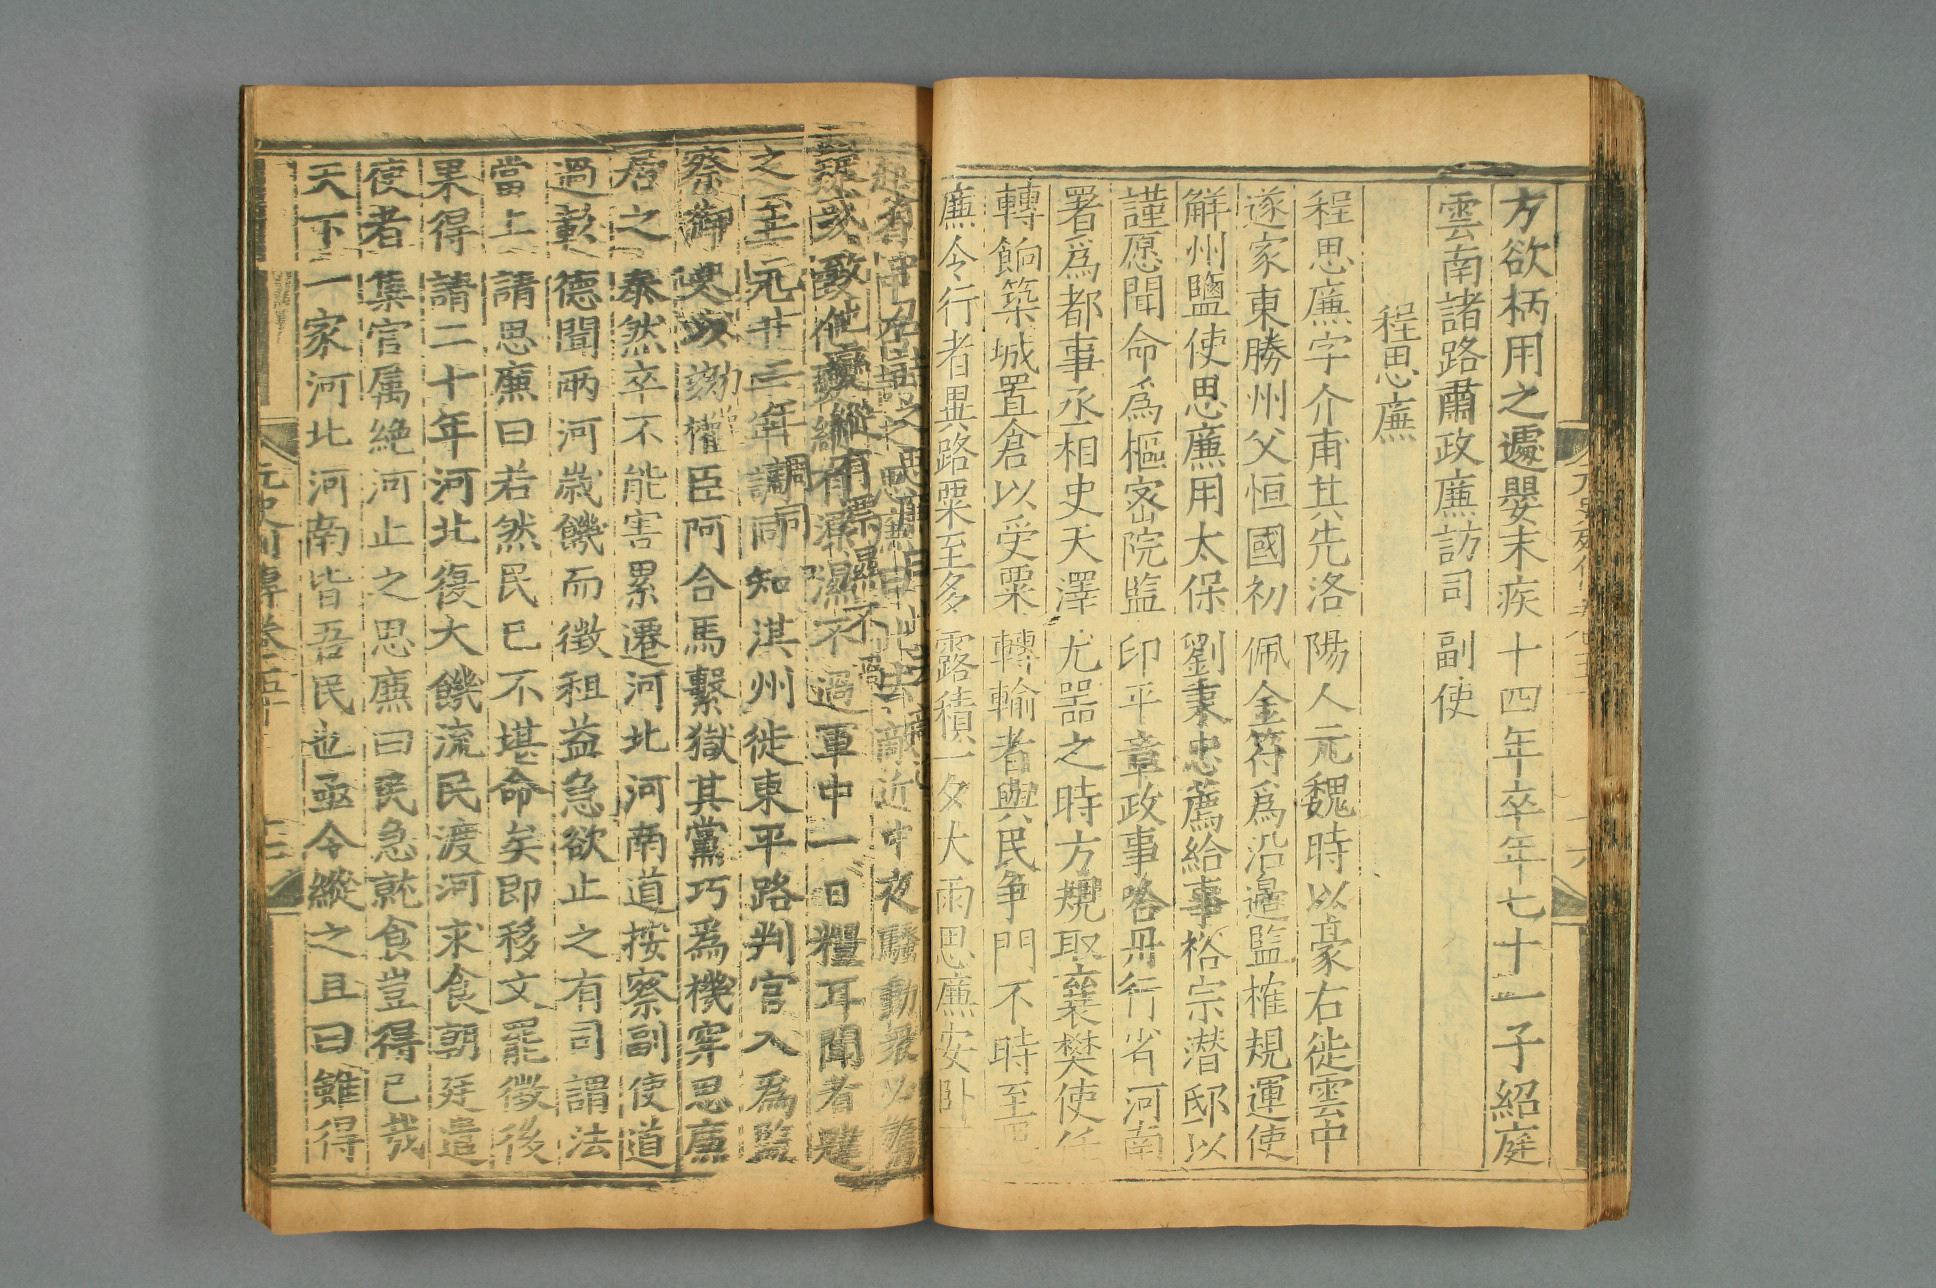 方欲柄用之遽嬰末疾十四年卒年七十一子紹庭
雲南諸路肅政廉訪司副使
程思廉
程思廉字介甫其先洛陽人元魏時以豪右徙雲中
遂家東勝州父恒國初佩金符爲沿邊監榷規運使
解州鹽使思廉用太保劉秉忠薦給事裕宗潜邸以
謹愿聞命爲樞密院監印平章政事哈丹行省河南
署爲都事丞相史天澤尤器之時方規取襄樊使任
轉餉築城置倉以受粟轉輸者與民争門不時至
廉令行者異路粟至多露積一夕大雨思廉安卧
敵近中夜騷動衆必驚
疑或致他變縱有漂濕不過軍中一日糧耳聞者韙
之至元十二年調同知淇州徙東平路判官入爲監
察御史以劾權臣阿合馬繫獄其黨巧爲機穽思廉
居之泰然卒不能害累遷河北河南道按察副使道
過彰德聞兩河歲饑而徵租益急欲止之有司謂法
當上請思廉曰若然民已不堪命矣即移文罷徵後
果得請二十年河北復大饑流民渡河求食朝廷遣
使者集官属絶河止之思廉曰民急就食豈得已哉
天下一家河北河南皆吾民也亟令縱之且曰雖得
元史列傳卷五十